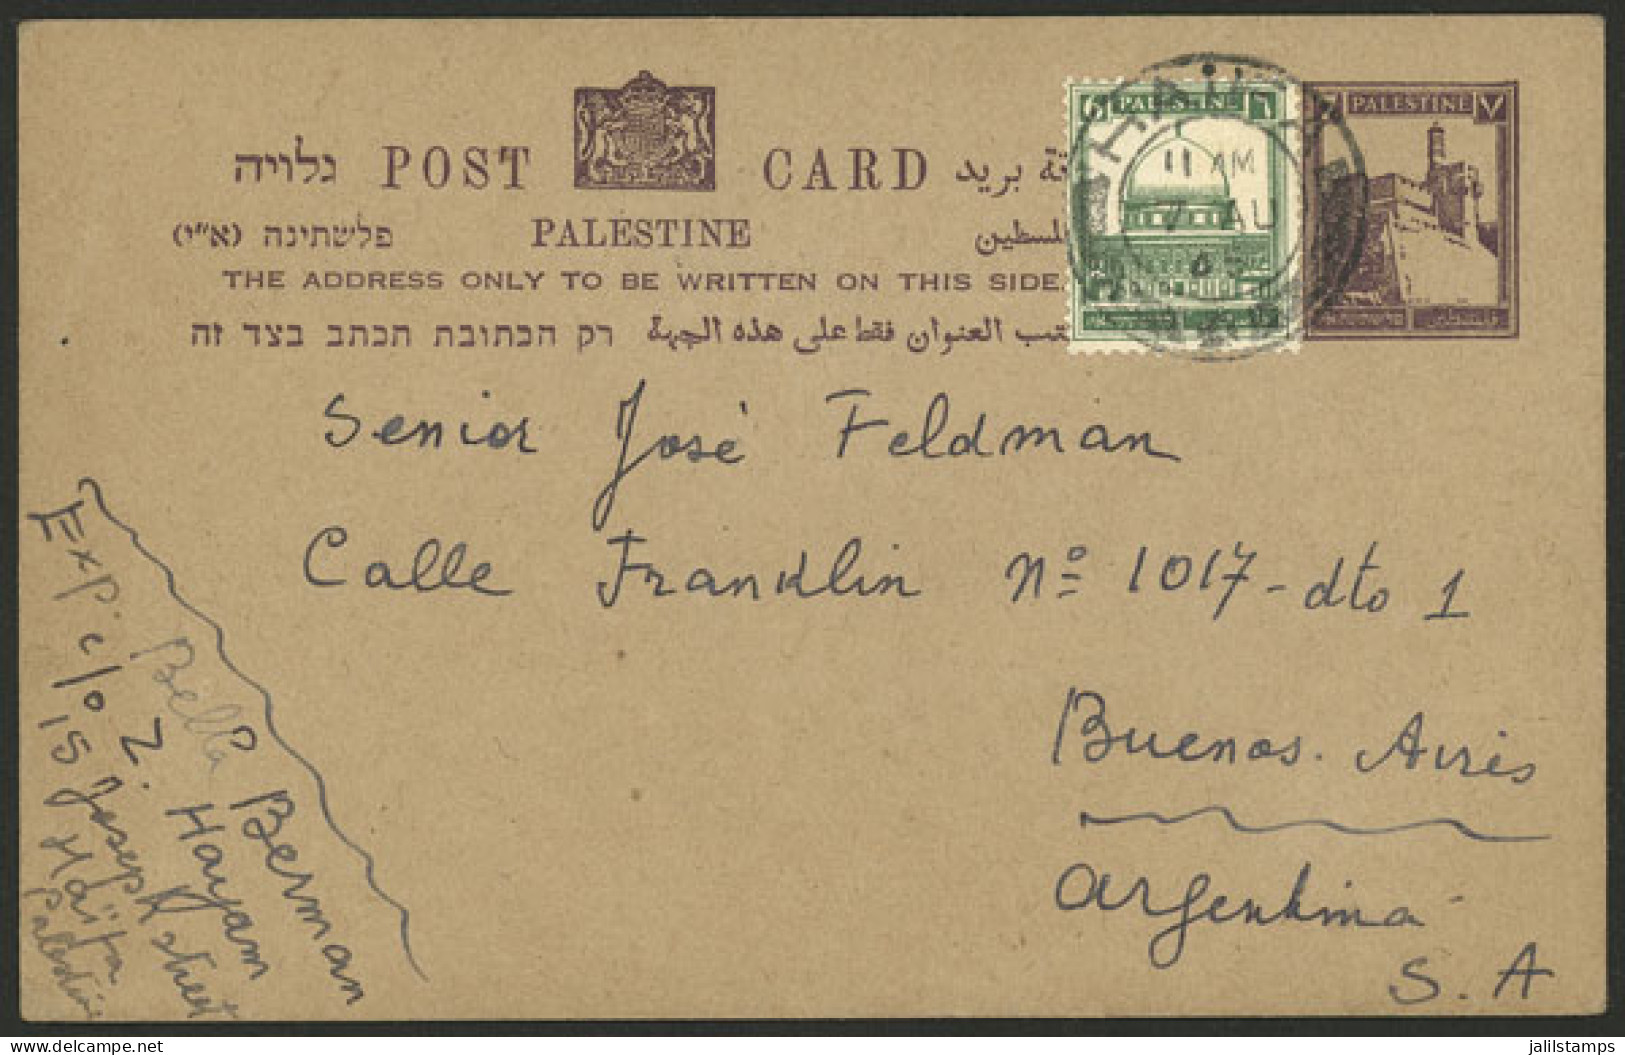 גלויה POST CARD بريد
פלשתינה (א״י) PALESTINE
THE ADDRESS ONLY TO BE WRITTEN ON THIS SIDE.
רק הכתובת תכתב בצד זה العنوان فقط على هذه الجهة
6 PALESTINE ٦
7 PALESTINE ٧
HAIFA
11 AM
7 AU
Senior José Feldman
Calle Franklin Nº 1017 - dto 1
Buenos. Aires
Argentina
S. A
Exp. Bella Berman
c/o Z. Hayam
15 Joseph street
Haifa
Palestine
jalilstamps